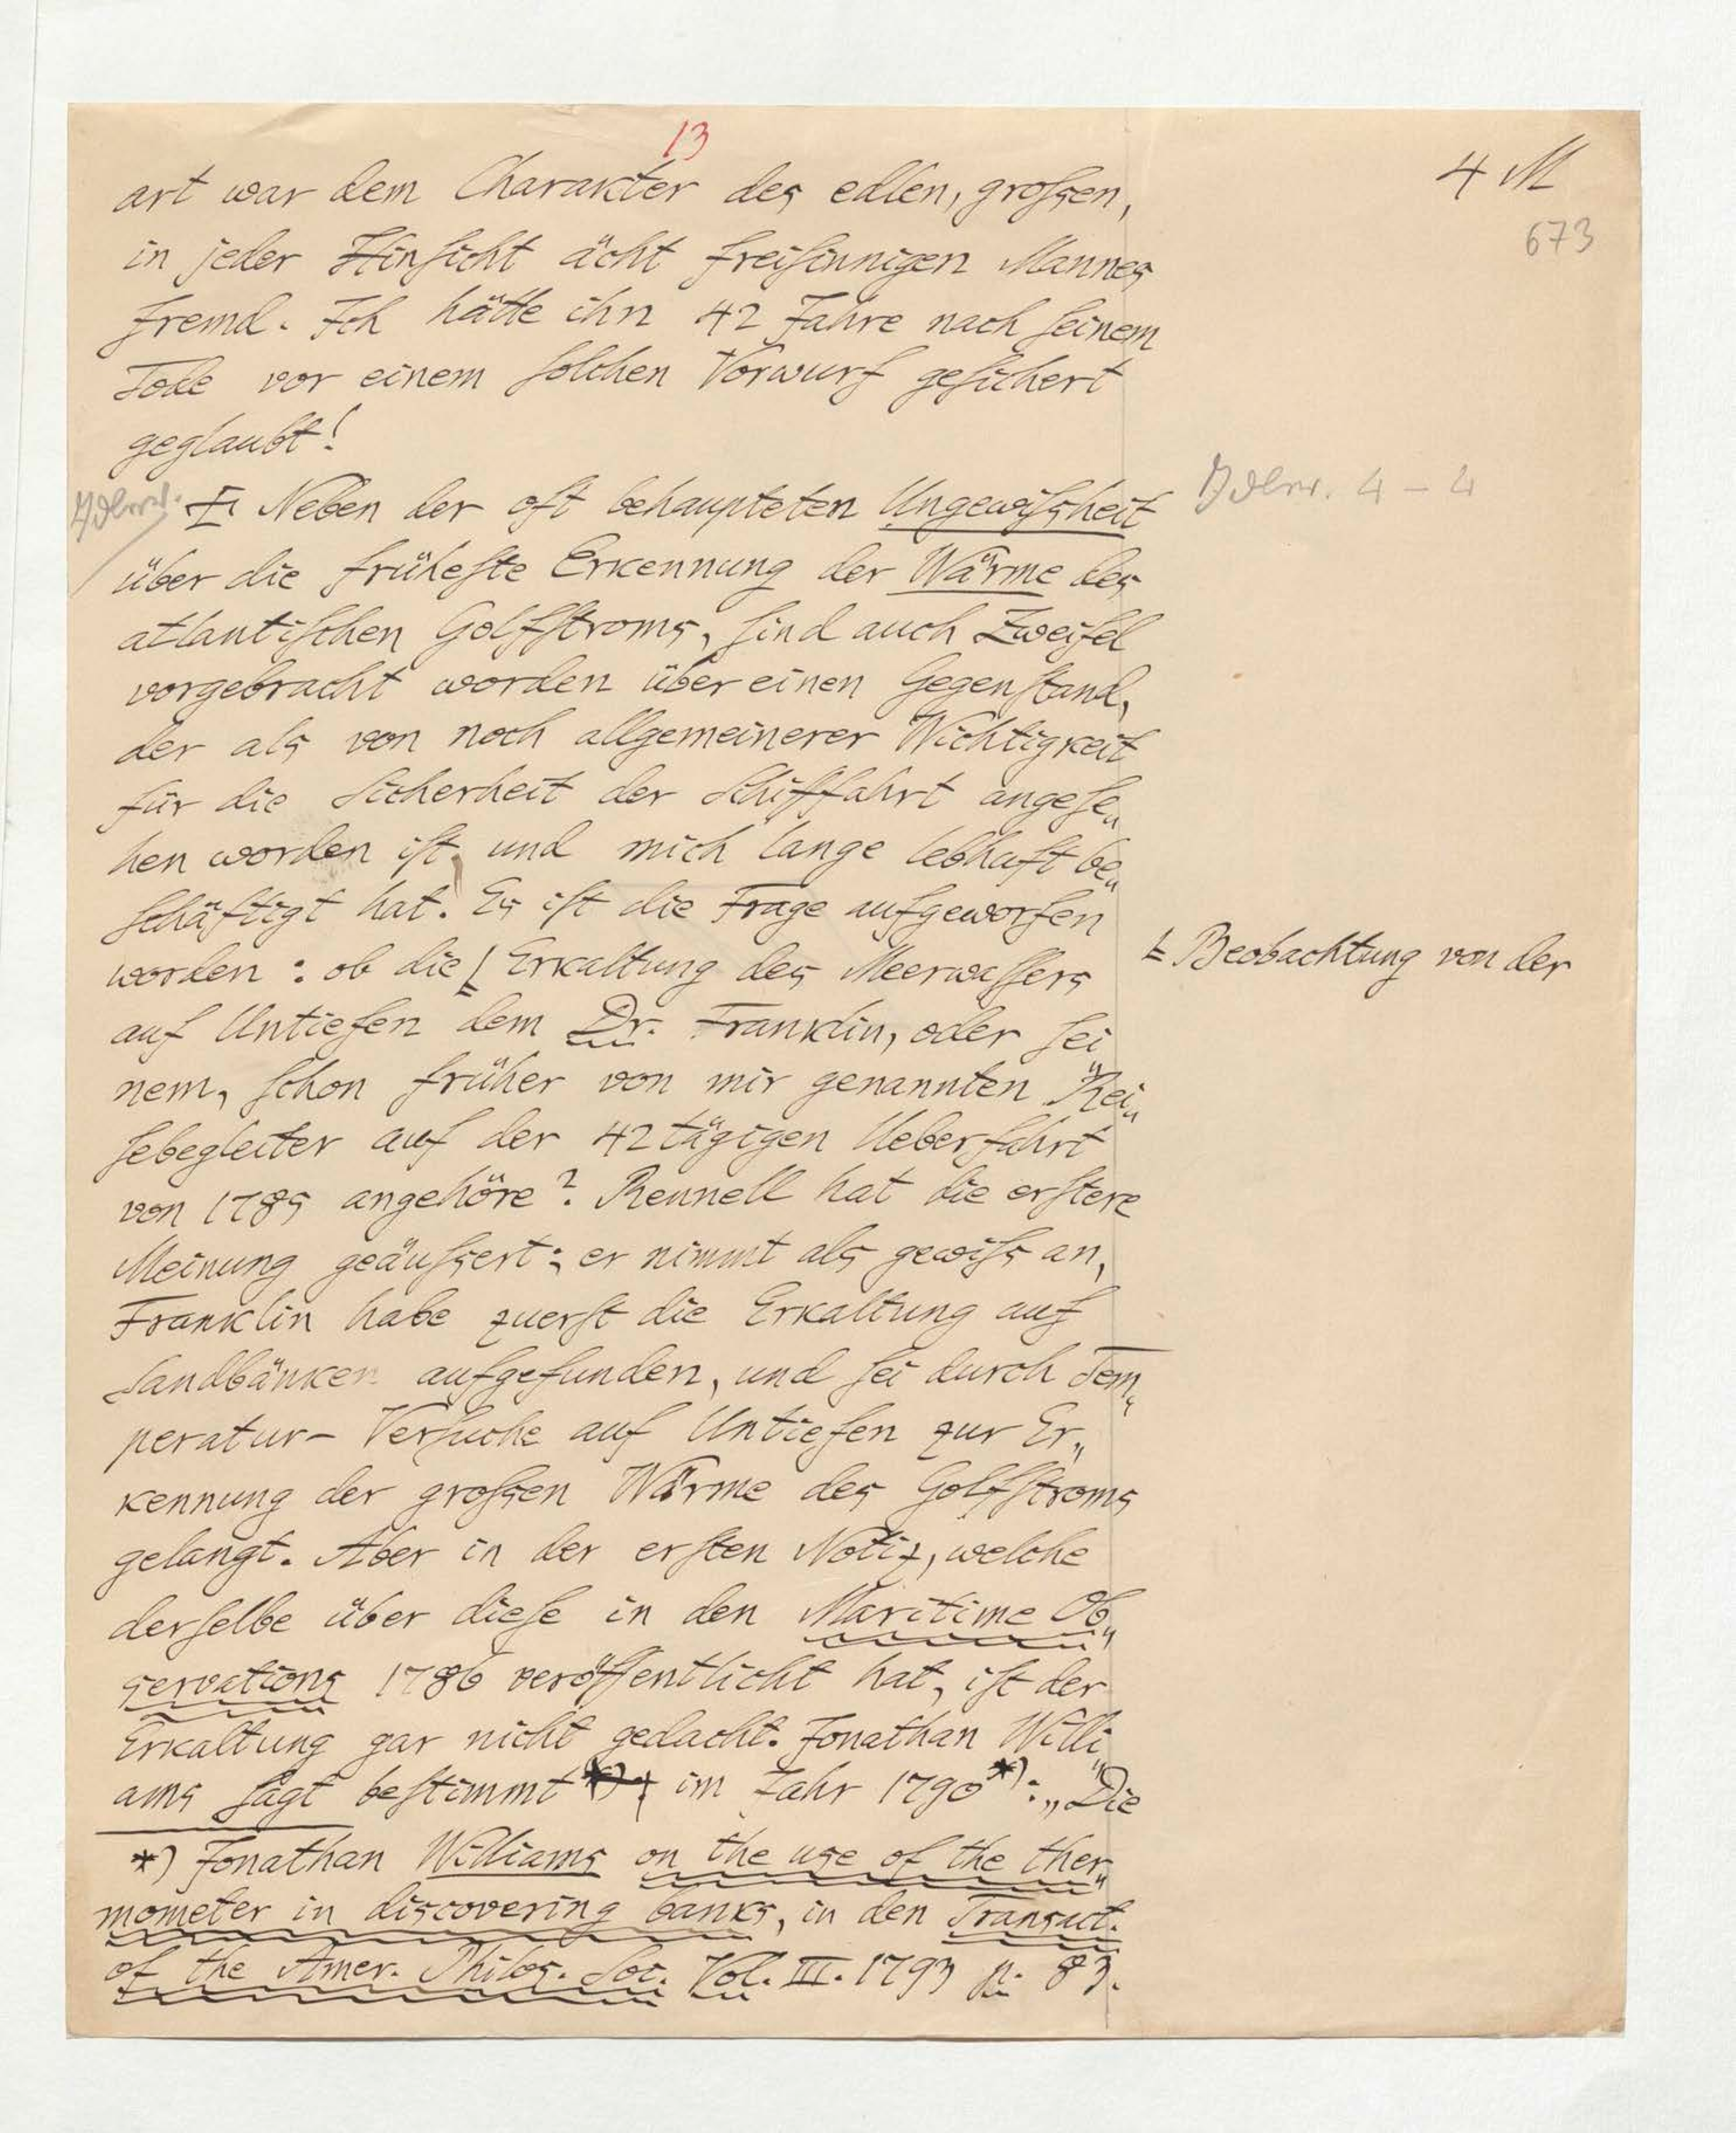 13
4 M
673
art war dem Charakter des edlen, großen,
in jeder Hinsicht ächt freisinnigen Mannes
fremd. Ich hätte ihn 42 Jahre nach seinem
Tode vor einem solchen Vorwurf gesichert
geglaubt!
Neben der oft behaupteten Ungewißheit
4 – 4
über die früheste Erkennung der Wärme des
atlantischen Golfstroms, sind auch Zweifel
vorgebracht worden über einen Gegenstand,
der als von noch allgemeinerer Wichtigkeit
für die Sicherheit der Schiffahrt angese„
hen worden ist, und mich lange lebhaft be„
schäftigt hat. Es ist die Frage aufgeworfen
worden: ob die Erkaltung des Meerwassers
Beobachtung von der
auf Untiefen dem Dr. Franklin, oder sei„
nem, schon früher von mir genannten Rei„
sebegleiter auf der 42tägigen Ueberfahrt
von 1785 angehöre? Rennell hat die erstere
Meinung geäußert; er nimmt als gewiß an,
Franklin habe zuerst die Erkaltung auf
Sandbänken aufgefunden, und sei durch Tem„
peratur-Versuche auf Untiefen zur Er„
kennung der großen Wärme des Golfstroms
gelangt. Aber in der ersten Notiz, welche
derselbe über diese in den Maritime Ob„
servations 1786 veröffentlicht hat, ist der
Erkaltung gar nicht gedacht. Jonathan Willi„
ams sagt bestimmt im Jahr 1790*): „Die
*) Jonathan Williams on the use of the ther„
mometer in discovering banks, in den Transact.
of the Amer. Philos. Soc. Vol. III. 1793 p. 83.